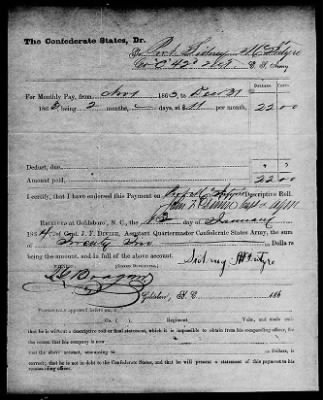 The Confederate States, Dr.
To Pvt. Sidney McIntyre
Co "C" 42" C. S. Army
For Monthly Pay, from Nov 1 1863, to Dec 31
1863, being 2 months, days, at $11 per month, 22 00
Deduct, due
Amount paid, 22 00
I certify, that I have endorsed this Payment on Descriptive Roll.
Capt & AQM
Received at Goldsboro', N. C., the 12 January
1864, of Capt. J. F. Divine, Assistant Quartermaster Confederate States Army, the sum
of Twenty Two Dollars
being the amount, and in full of the above account.
(Signed Duplicates.)
Sidney McIntyre
Goldsboro', N. C. 186
Personally appeared before me
Co. ( ) Regiment Vols.
that he is without a descriptive roll or final statement, which it is impossible to obtain from his commanding officer, for the reason
his company is now
that the above account, amounting to Dollars, is
correct; that he is not in debt to the Confederate States, and that he will present a statement of this payment to his
commanding officer.